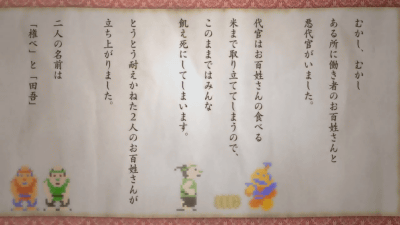 むかし、むかし
ある所に働き者のお百姓さんと
悪代官がいました。
代官はお百姓さんの食べる
米まで取り立ててしまうので、
このままではみんな
飢え死にしてしまいます。
とうとう耐えかねた2人のお百姓さんが
立ち上がりました。
二人の名前は
「権べ」と「田吾」